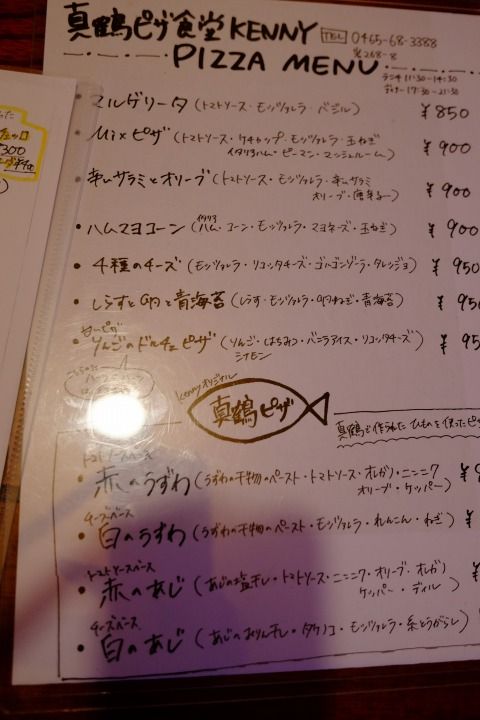 真鶴ピザ食堂 KENNY
TEL 0465-68-3388
PIZZA MENU
ランチ 11:30-14:30
ディナー 17:30-21:30
¥300
・マルゲリータ (トマトソース・モッツァレラ・バジル) ¥850
・Mixピザ (トマトソース・ケチャップ・モッツァレラ・玉ねぎ ¥900
イタリアハム・ピーマン・マッシュルーム)
・辛いサラミとオリーブ (トマトソース・モッツァレラ・辛いサラミ ¥900
オリーブ・唐辛子)
・ハムマヨコーン (イタリアハム・コーン・モッツァレラ・マヨネーズ・玉ねぎ) ¥900
・4種のチーズ (モッツァレラ・リコッタチーズ・ゴルゴンゾーラ・タレッジョ) ¥950
・しらすと卵と青海苔 (しらす・モッツァレラ・卵・ねぎ・青海苔) ¥95
甘いピザ
・りんごのドルチェピザ (りんご・はちみつ・バニラアイス・リコッタチーズ ¥95
シナモン)
Kennyオリジナル
真鶴ピザ
真鶴で作られたひものを使ったピ
トマトソースベース
・赤のうずわ (うずわの干物のペースト・トマトソース・オレガノ・ニンニク ¥
オリーブ・ケッパー)
チーズベース
・白のうずわ (うずわの干物のペースト・モッツァレラ・れんこん・ねぎ) ¥
トマトソースベース
・赤のあじ (あじの塩干し・トマトソース・ニンニク・オリーブ・オレガノ ¥
ケッパー・ディル)
チーズベース
・白のあじ (あじのみりん干し・タケノコ・モッツァレラ・糸とうがらし) ¥